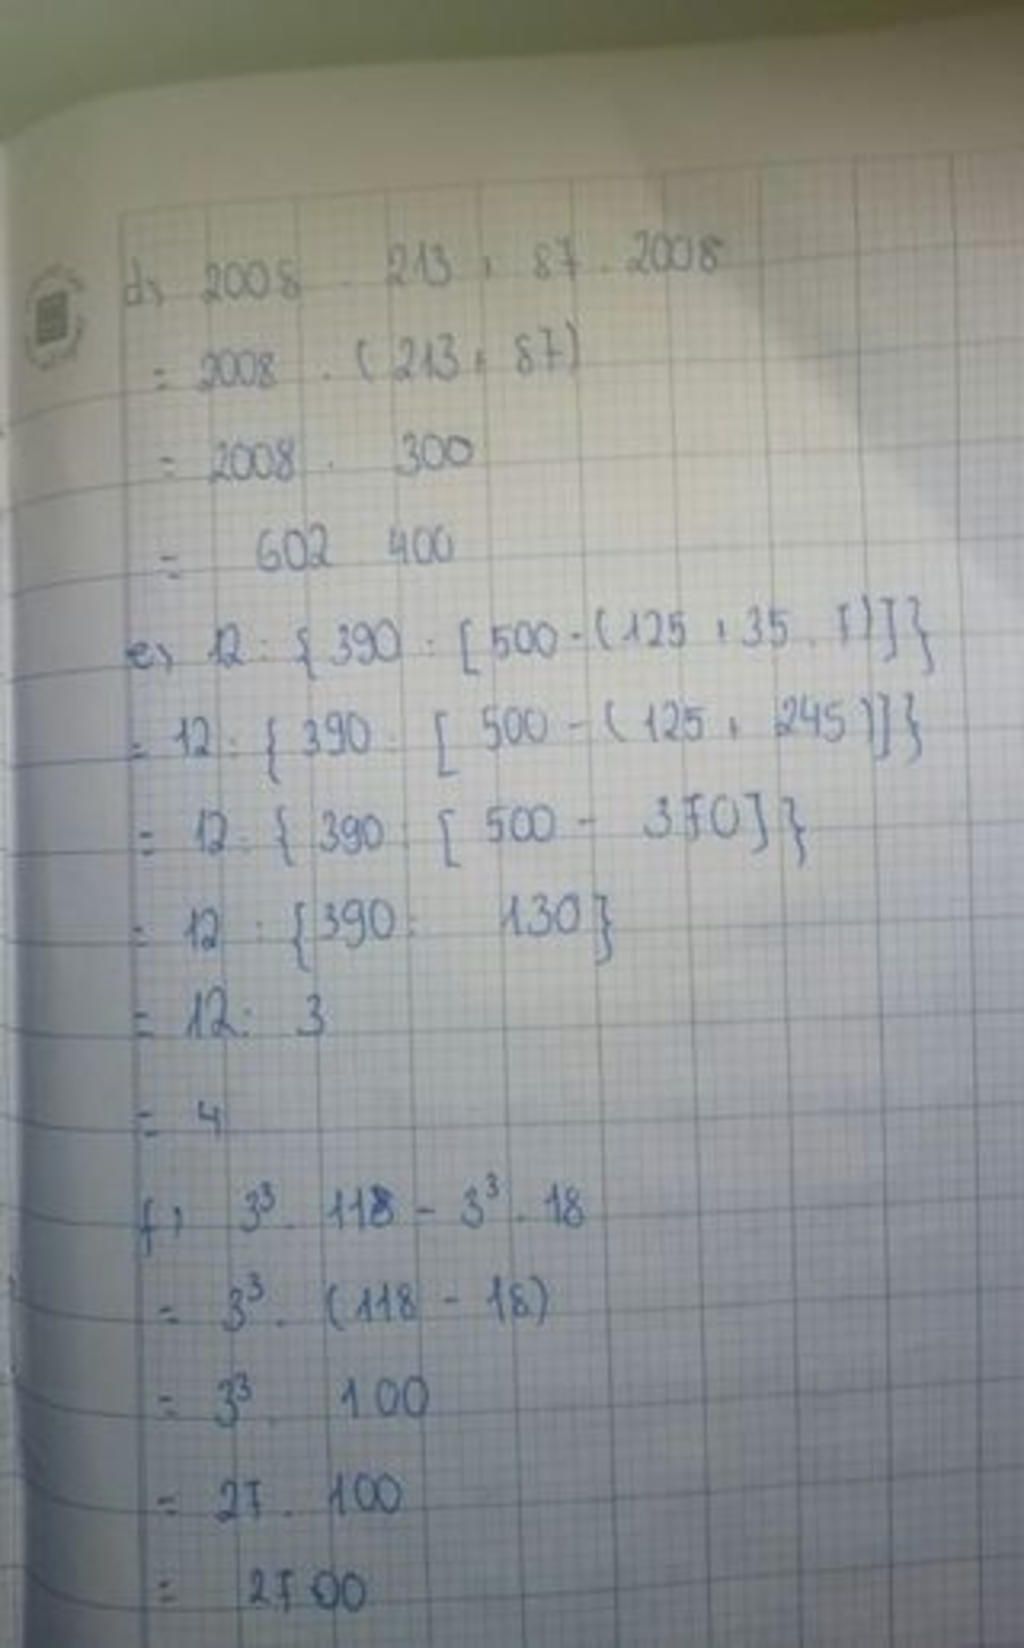 d, 2008 . 213 + 87 . 2008
= 2008 . (213 + 87)
= 2008 . 300
= 602 400
e, 12 : {390 : [500 - (125 + 35 . 7)]}
= 12 : {390 : [500 - (125 + 245)]}
= 12 : {390 : [500 - 370]}
= 12 : {390 : 130}
= 12 : 3
= 4
f, 3³ . 118 - 3³ . 18
= 3³ . (118 - 18)
= 3³ . 100
= 27 . 100
= 2700